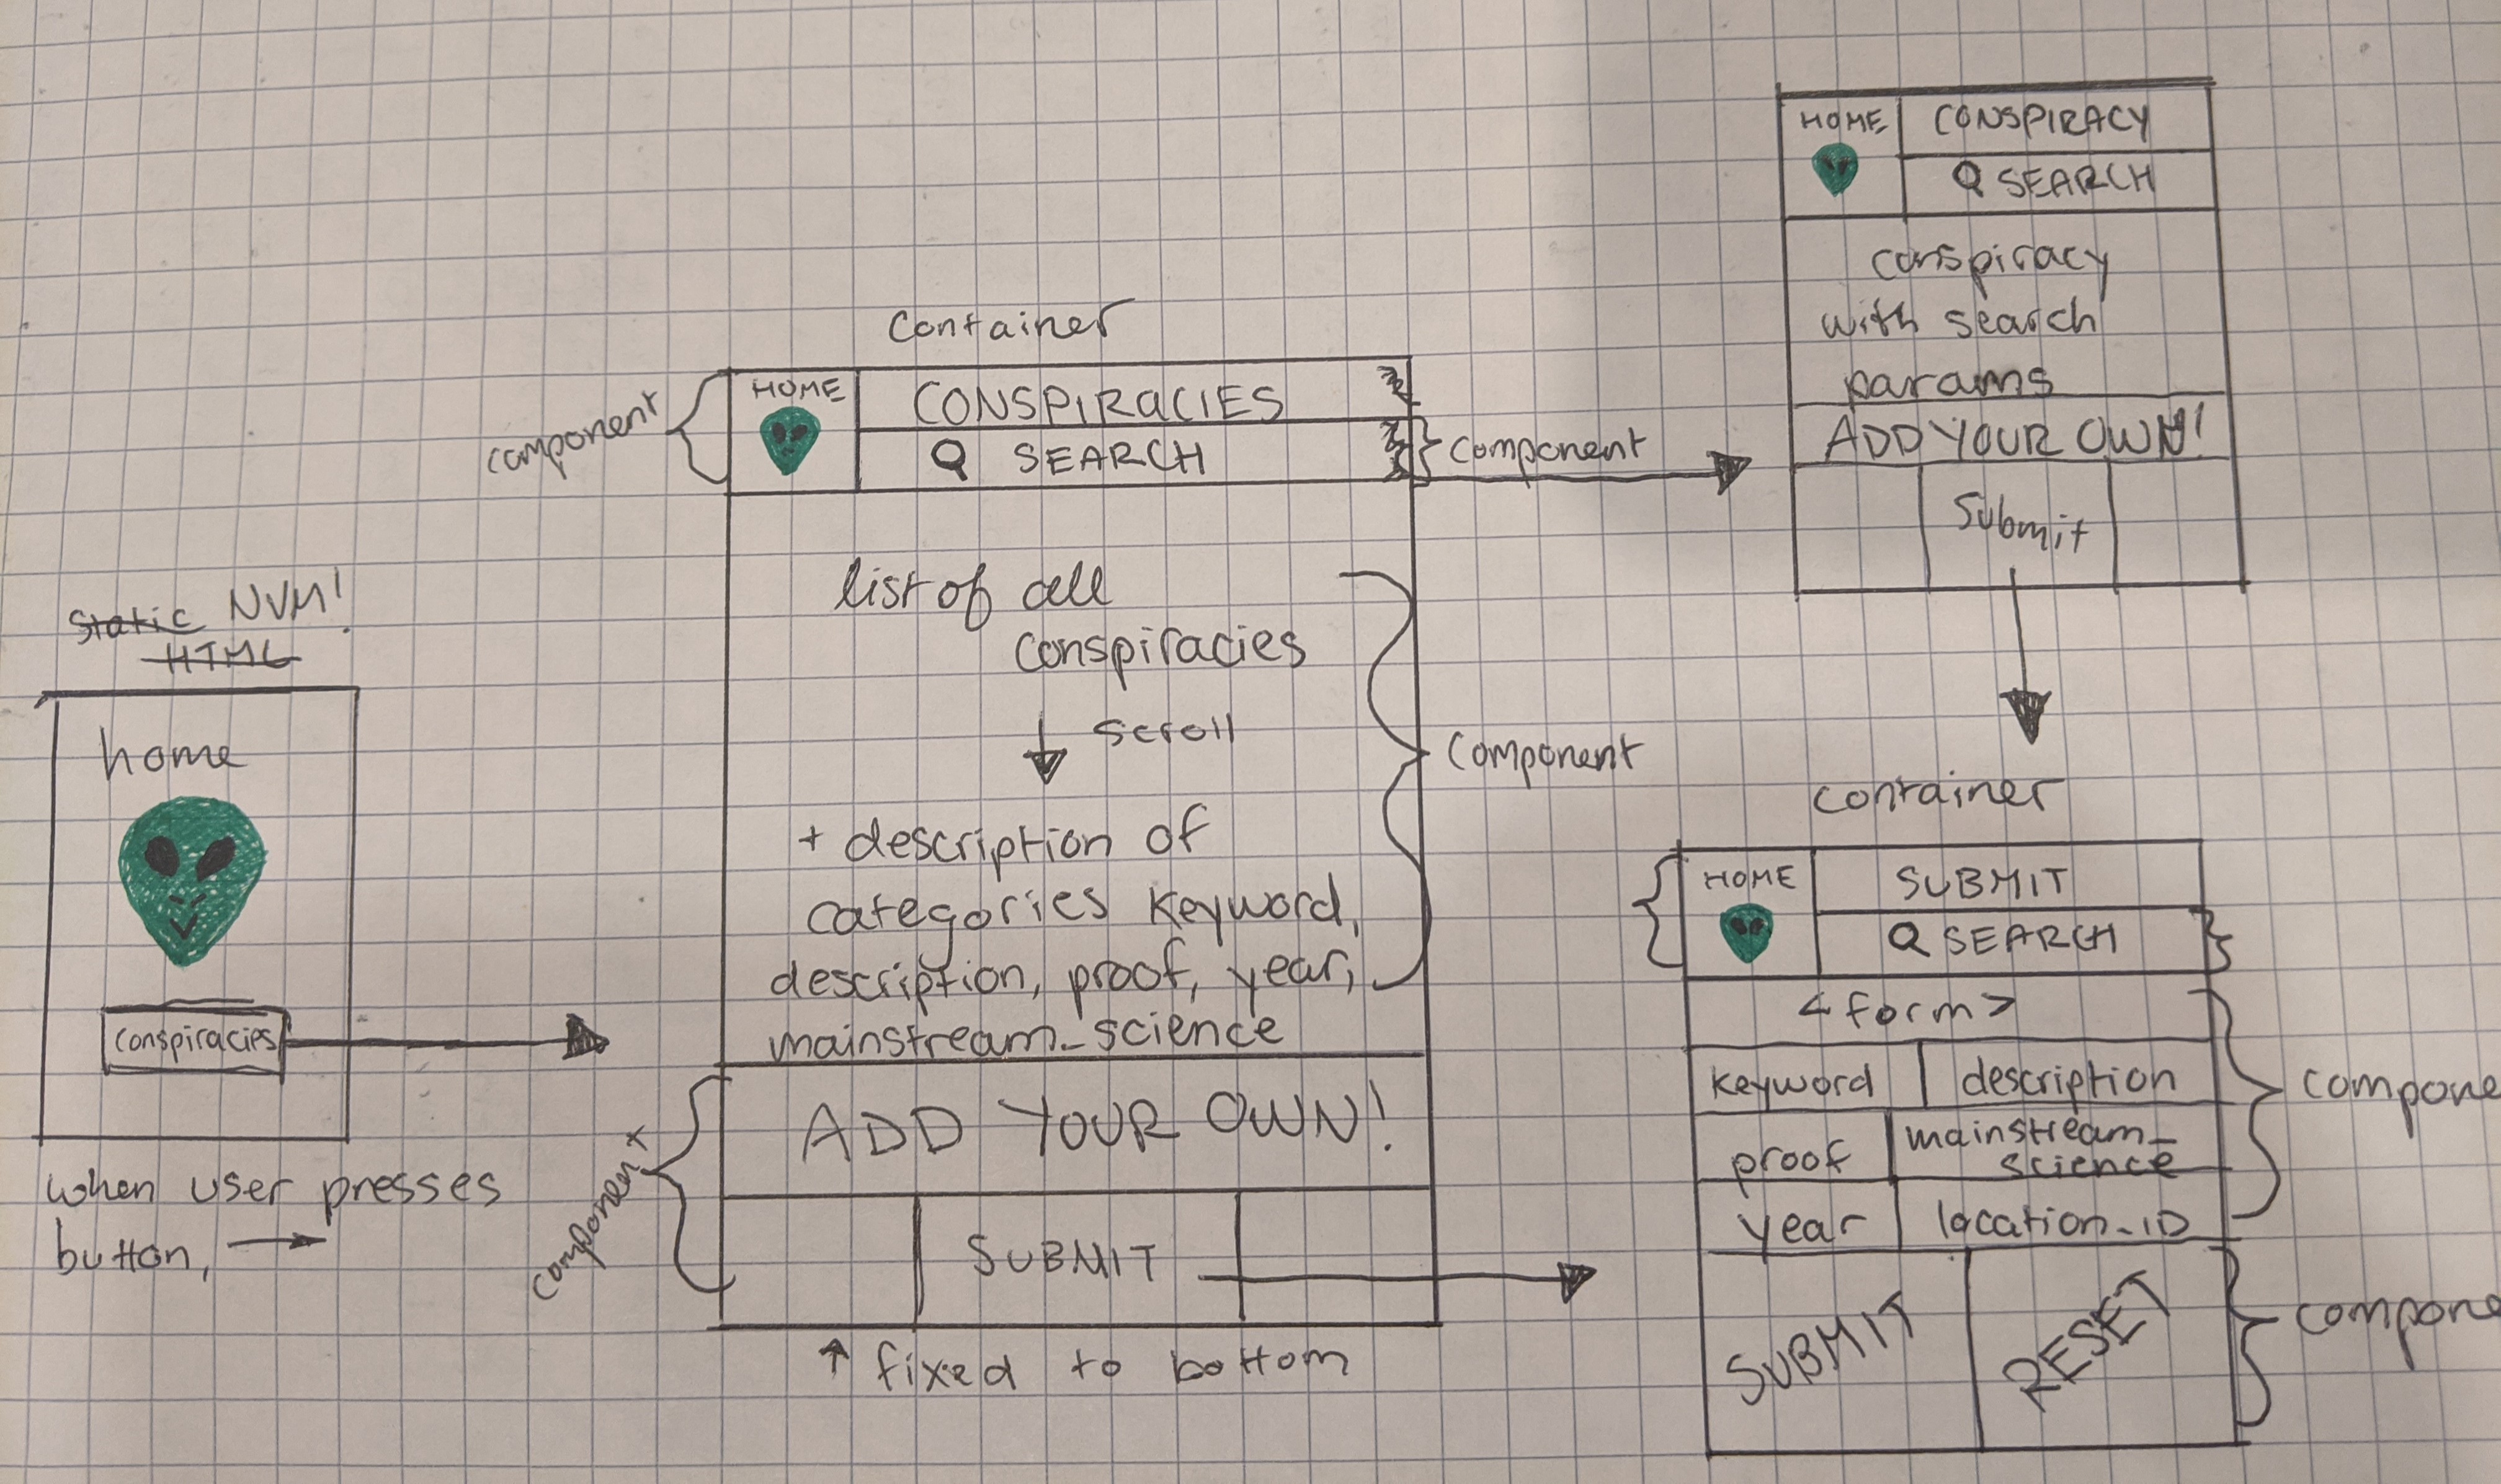 Static NVM!
HTML
home
conspiracies
when user presses
button,
Container
component
HOME
CONSPIRACIES
SEARCH
component
list of all
conspiracies
scroll
+ description of
categories keyword,
description, proof, year,
mainstream_science
component
ADD YOUR OWN!
component
SUBMIT
fixed to bottom
HOME
CONSPIRACY
SEARCH
conspiracy
with search
params
ADD YOUR OWN!
Submit
container
HOME
SUBMIT
SEARCH
<form>
keyword
description
proof
mainstream_
science
year
location_ID
compone
SUBMIT
RESET
compone